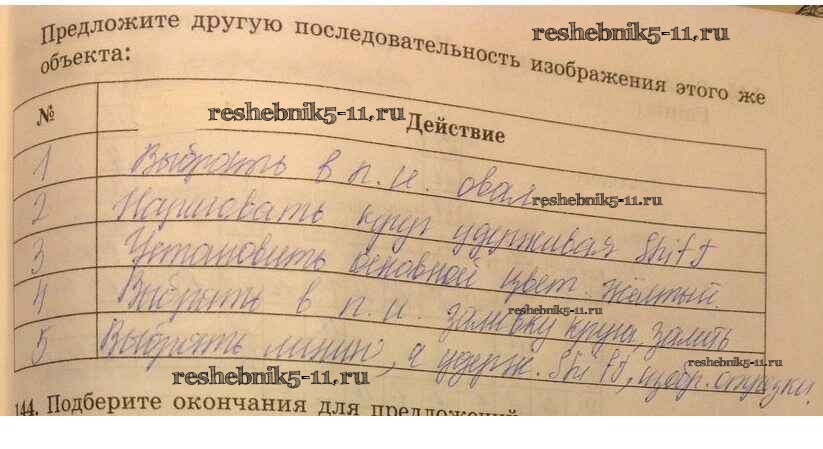 Предложите другую последовательность изображения этого же
объекта:
reshebnik5-11.ru
№ Действие
reshebnik5-11.ru
1 Выбрать в п. и. овал
reshebnik5-11.ru
2 Нарисовать круг удерживая Shift
3 Установить основной цвет жёлтый.
reshebnik5-11.ru
4 Выбрать в п. и. заливку круга, залить
5 Выбрать линию, а удерж. Shift, изобр. отрезки.
reshebnik5-11.ru
reshebnik5-11.ru
144. Подберите окончания для предложений